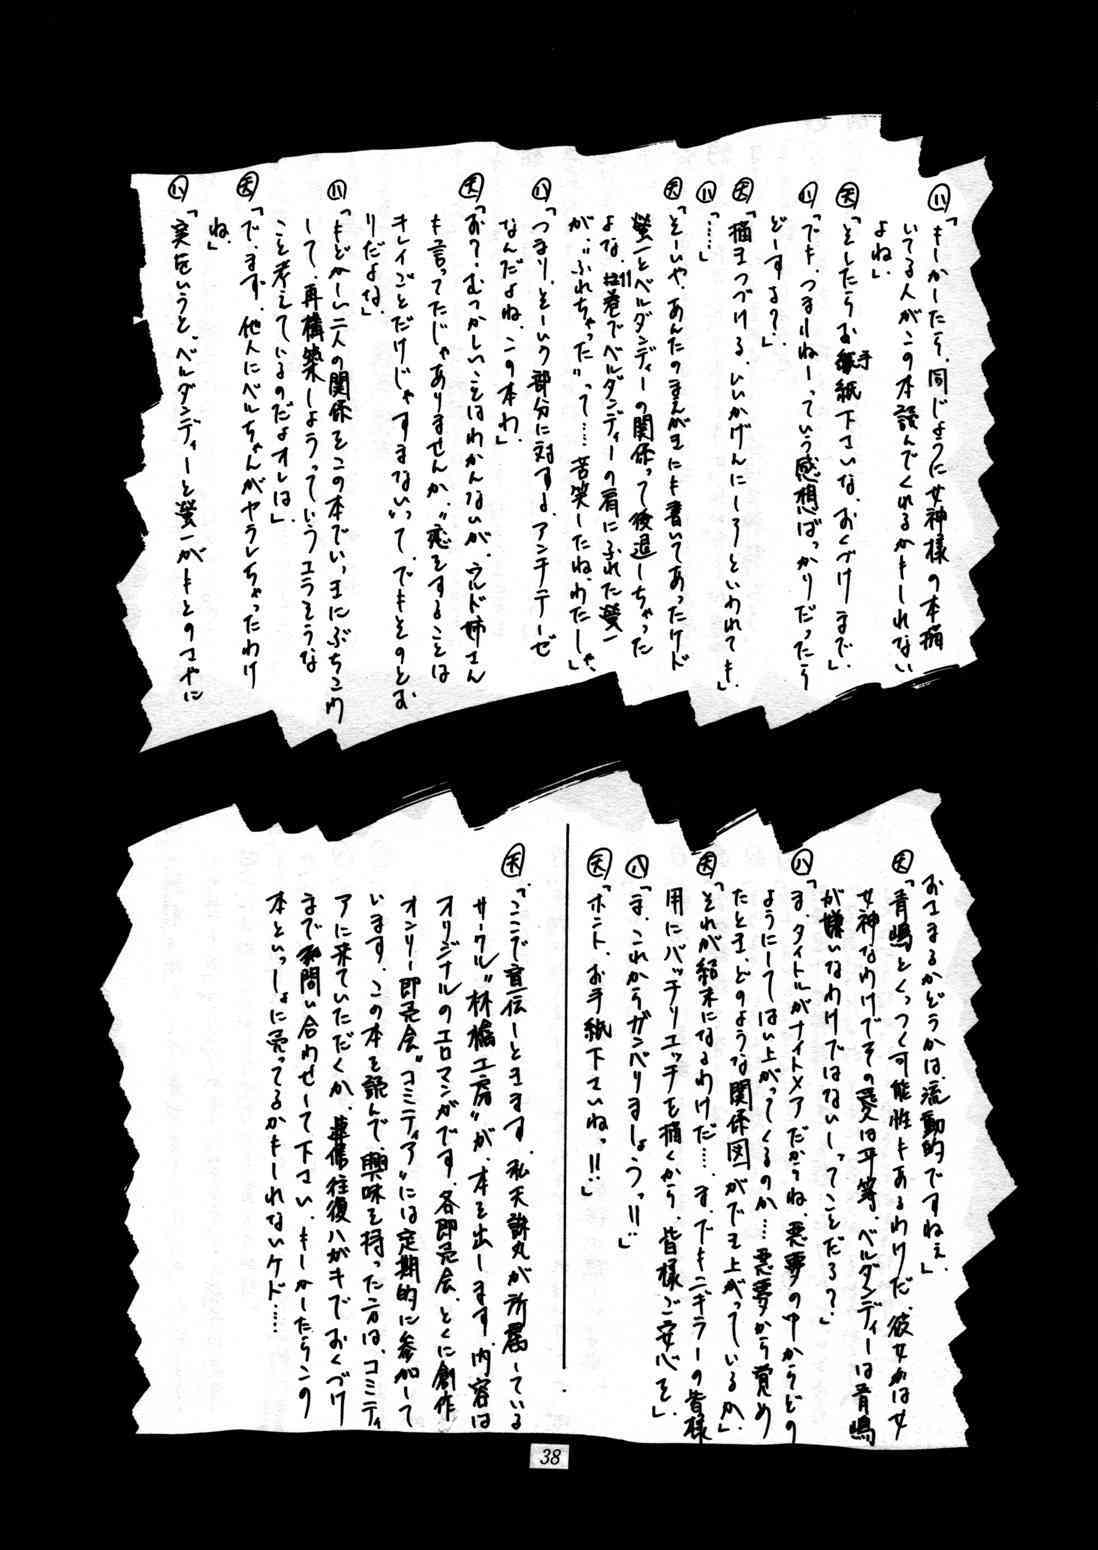 ㈧「もしかしたら、同じように女神様の本描
いてる人がこの本読んでくれるかもしれない
よね。」
㊝「そしたらお手紙下さいな、おくづけまで。」
㈧「でも、つまんねーっていう感想ばっかりだったら
どーする？」
㊝「描きつづける、いいかげんにしろといわれても。」
㈧「……」
㊝「そーいや、あんたのまえがきにも書いてあったケド
螢一とベルダンディーの関係って後退しちゃった
よな。#11巻でベルダンディーの肩にふれた螢一
が、〝ふれちゃった〟って……苦笑したね、わたしゃ。」
㈧「つまり、そーいう部分に対する、アンチテーゼ
なんだよね、この本わ。」
㊝「お？、むつかしいことはわかんないが、ウルド姉さん
も言ってたじゃありませんか、〝恋をすることは
キレイごとだけじゃすまない〟って、でもそのとお
りだよな。」
㈧「もどかしい二人の関係をこの本でいっきにぶちこわ
して、再構築しようっていうエラそうな
こと考えているのだよオレは。」
㊝「で、まず、他人にベルちゃんがヤラレちゃったわけ
ね。」
㈧「実をいうと、ベルダンディーと螢一がもとのさやに
おさまるかどうかは、流動的ですねぇ。」
㊝「青嶋とくっつく可能性もあるわけだ、彼女わは女
女神なわけでその愛は平等、ベルダンディーは青嶋
が嫌いなわけではないしってことだろ？。」
㈧「ま、タイトルがナイトメアだからね、悪夢の中からどの
ようにしてはい上がってくるのか……悪夢から覚め
たとき、どのような関係図ができ上がっているか。」
㊝「それが結末になるわけだ……、ま、でもニギラーの皆様
用にバッチリエッチを描くから、皆様ご安心を。」
㈧「ま、これからガンバりましょうっ!!。」
㊝「ホント、お手紙下さいねっ!!」
㊝「ここで宣伝しときます。私天誅丸が所属している
サークル〝林檎工房〟が、本を出します。内容は
オリジナルのエロマンガです、各即売会、とくに創作
オンリー即売会〝コミティア〟には定期的に参加して
います。この本を読んで、興味を持った方は、コミティ
アに来ていただくか、葉書往復ハガキでおくづけ
まで問い合わせして下さい。もしかしたらこの
本といっしょに売ってるかもしれないケド……
38